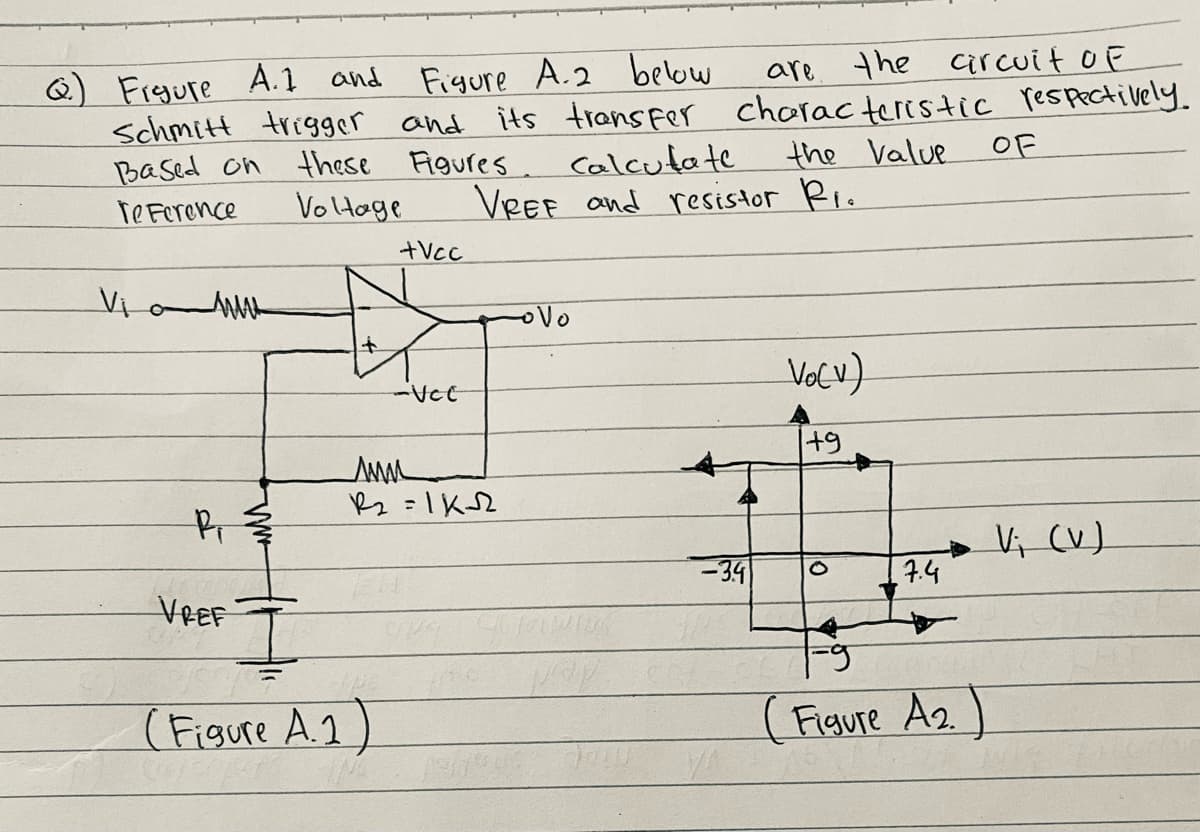 Q) Figure A.1 and Figure A.2 below are the circuit of
Schmitt trigger and its transfer characteristic respectively.
Based on these Figures. Calculate the Value of
reference Voltage VREF and resistor R1.
+Vcc
Vi
-
+
Vo
-Vcc
R2 = 1KΩ
R1
VREF
(Figure A.1)
Vo(V)
+9
Vi (V)
-3.4
0
7.4
-9
(Figure A2.)